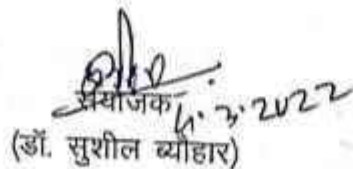 संयोजक 4.3.2022
(डॉ. सुशील ब्यौहार)